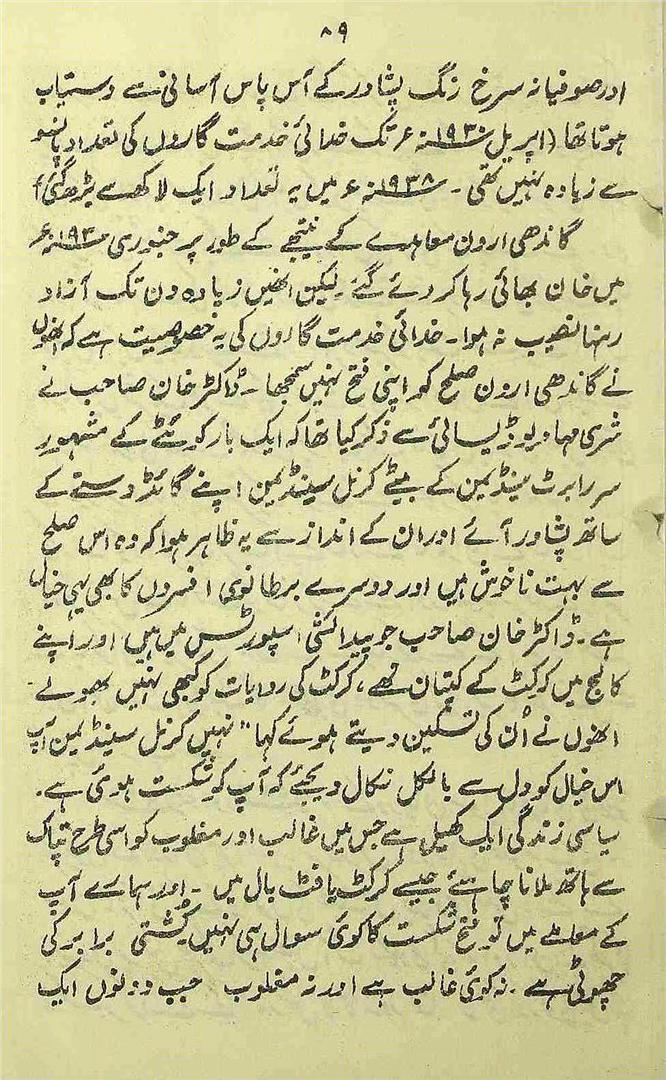 ۸۹
اور صوفیانہ سرخ رنگ پشاور کے آس پاس آسانی سے دستیاب
ہوتا تھا (اپریل ۱۹۳۰ء تک خدائی خدمت گاروں کی تعداد پانسو
سے زیادہ نہیں تھی ۔ ۱۹۳۸ء میں یہ تعداد ایک لاکھ سے بڑھ گئی)
گاندھی ارون معاہدے کے نتیجے کے طور پر جنوری
میں خان بھائی رہا کر دئے گئے ۔ لیکن انھیں زیادہ دن تک آزاد
رہنا نصیب نہ ہوا ۔ خدائی خدمت گاروں کی یہ خصوصیت ہے کہ انھوں
نے گاندھی ارون صلح کو اپنی فتح نہیں سمجھا ۔ ڈاکٹر خان صاحب نے
شری مہادیو ڈیسائی سے ذکر کیا تھا کہ ایک بار کوئٹے کے مشہور
سر رابرٹ سینڈیمن کے بیٹے کرنل سینڈیمن اپنے گائڈ دستے کے
ساتھ پشاور آئے اور ان کے انداز سے یہ ظاہر ہوا کہ وہ اس صلح
سے بہت ناخوش ہیں اور دوسرے برطانوی افسروں کا بھی یہی خیال
ہے ۔ ڈاکٹر خان صاحب جو پیدائشی اسپورٹس مین ہیں اور اپنے
کالج میں کرکٹ کے کپتان تھے ، کرکٹ کی روایات کو کبھی نہیں بھولے ۔
انھوں نے اُن کی تسکین دیتے ہوئے کہا " نہیں کرنل سینڈیمن آپ
اس خیال کو دل سے بالکل نکال دیجئے کہ آپ کو شکست ہوئی ہے ۔
سیاسی زندگی ایک کھیل ہے جس میں غالب اور مغلوب کو اسی طرح تپاک
سے ہاتھ ملانا چاہئے جیسے کرکٹ یا فٹ بال میں ۔ اور ہمارے آپ
کے معاملے میں تو فتح شکست کا کوئی سوال ہی نہیں ۔ کُشتی برابر کی
چھوٹی ہے ۔ نہ کوئی غالب ہے اور نہ مغلوب جب دونوں ایک